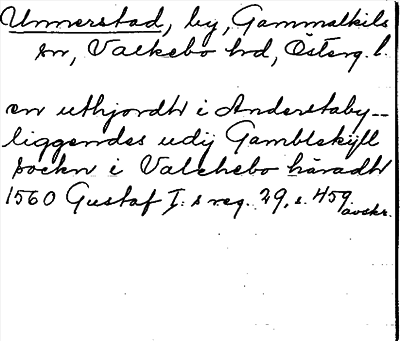 Unnerstad, by, Gammalkils
sn, Valkebo hd, Österg. l.
en uthjordh i Anderstaby--
liggendes udij Gamblekijll
sockn i Valckebo häradh
1560 Gustaf I:s reg. 29, s. 459
avskr.